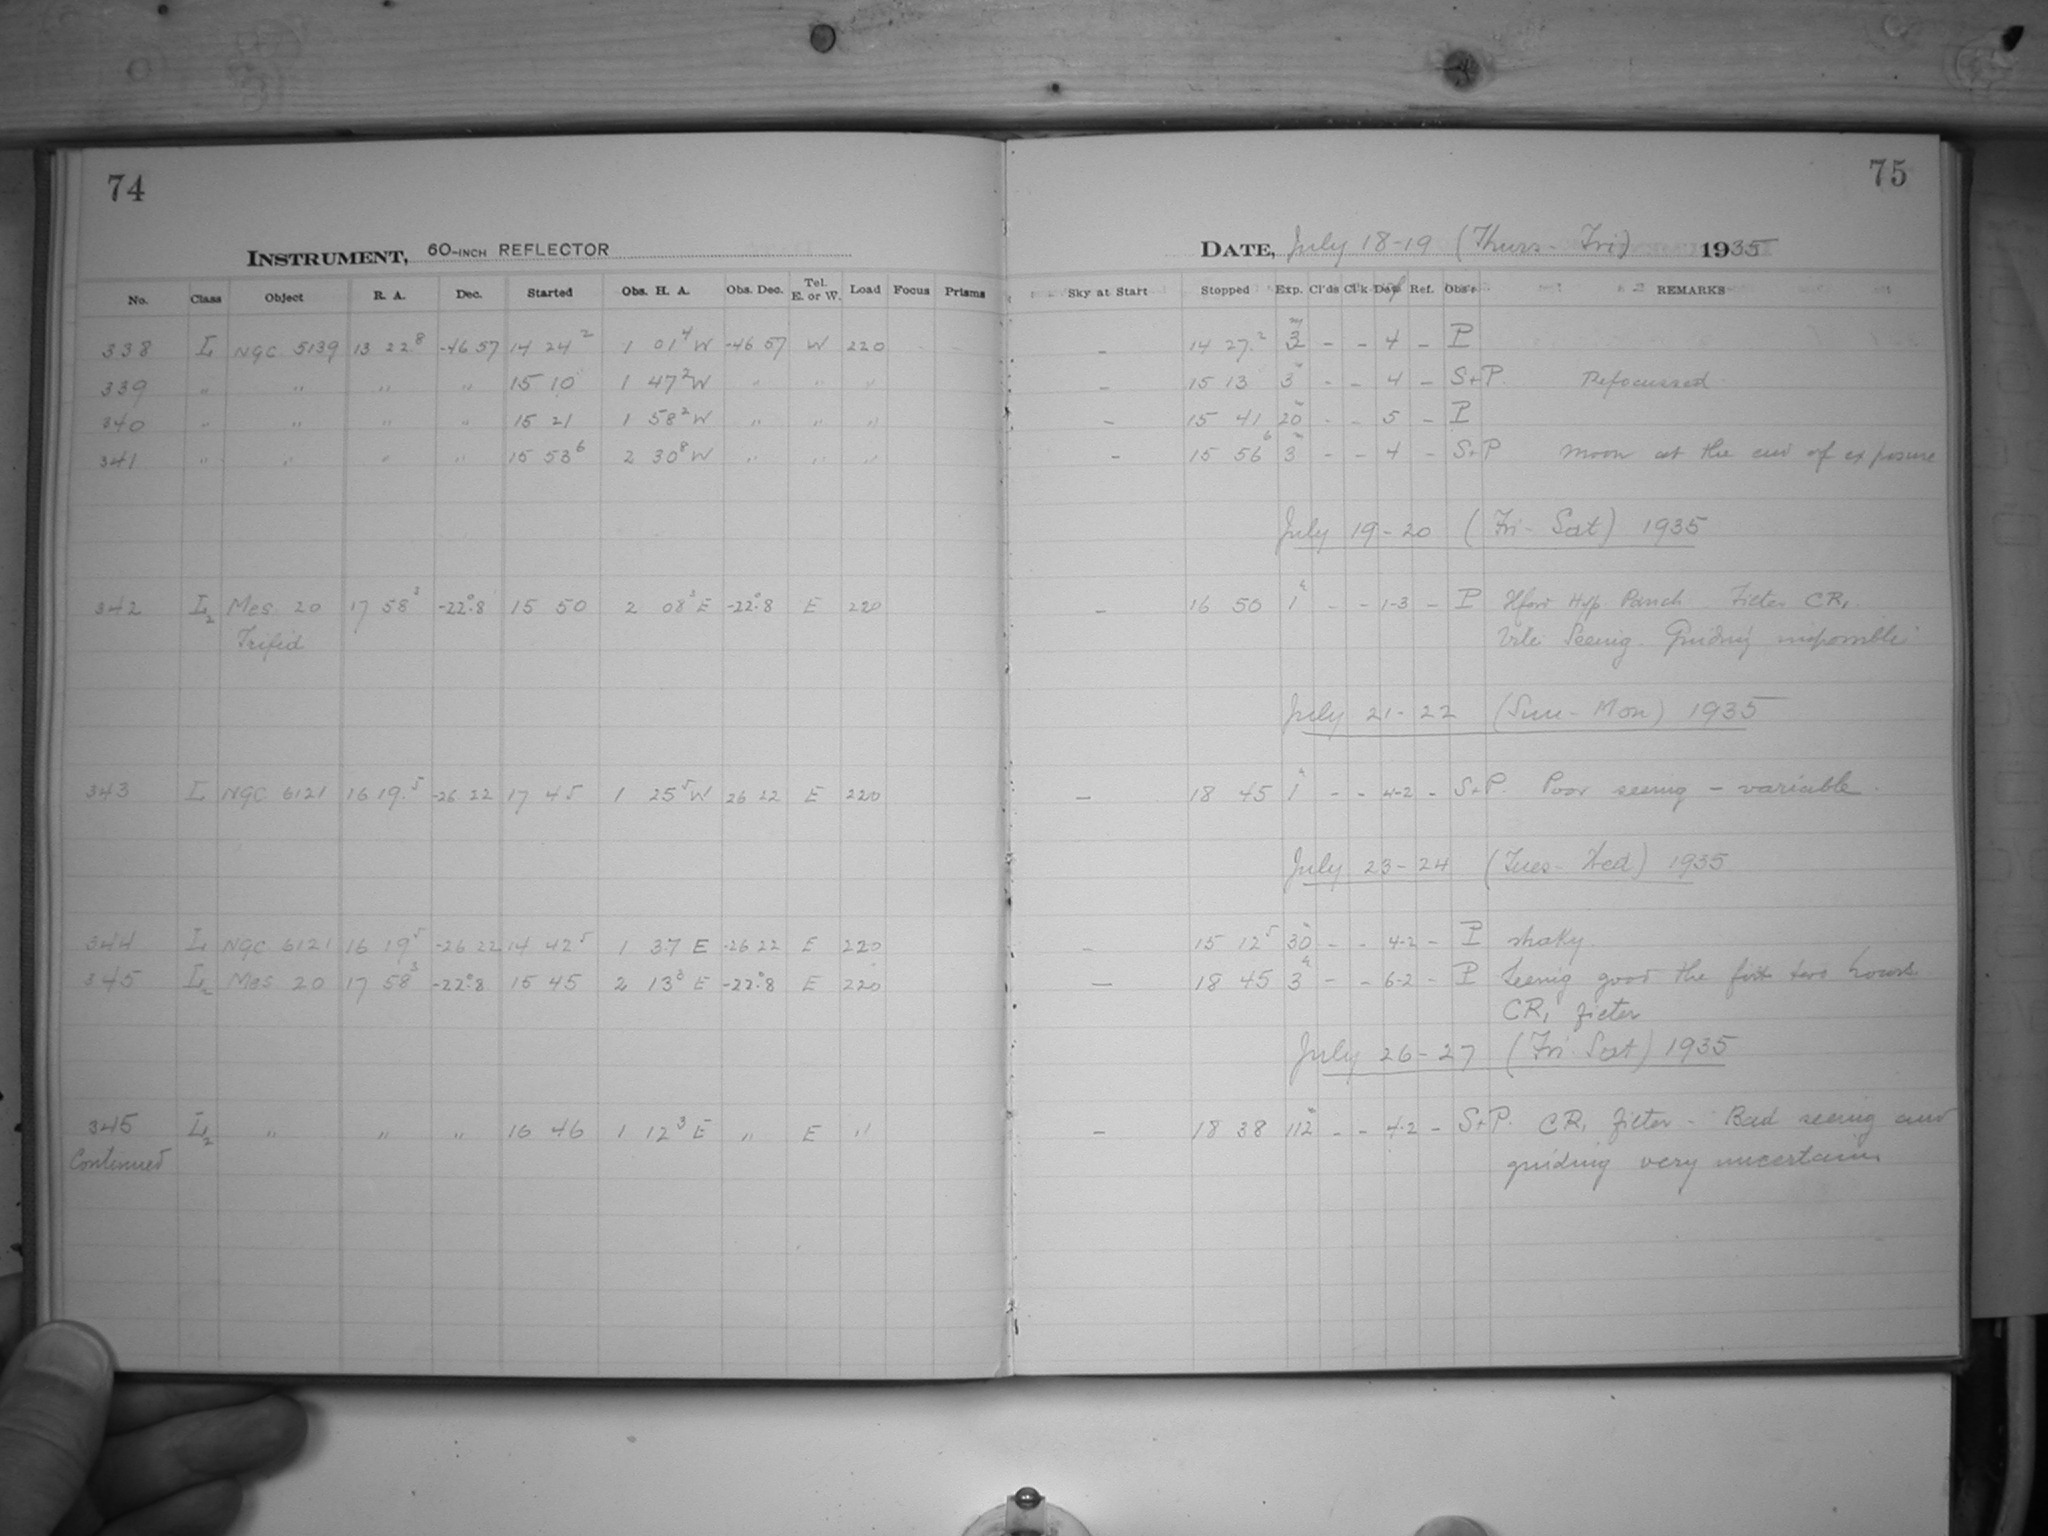 74
INSTRUMENT, 60-INCH REFLECTOR
No. Class Object R. A. Dec. Started Obs. H. A. Obs. Dec. Tel. E. or W. Load Focus Prisms
338 L NGC 5139 13 22.8 -46 57 14 24 2 1 01 4 W -46 57 W 220
339 " " " " 15 10 1 47 2 W " " "
340 " " " " 15 21 1 58 2 W " " "
341 " " " " 15 53 6 2 30 8 W " " "
342 L2 Mes. 20 17 58 3 -22°.8 15 50 2 08 3 E -22°.8 E 220
Trifid
343 L NGC 6121 16 19.5 -26 22 17 45 1 25 5 W 26 22 E 220
344 L NGC 6121 16 19 5 -26 22 14 42 5 1 37 E -26 22 E 220
345 L2 Mes 20 17 58 3 -22°.8 15 45 2 13 3 E -22°.8 E 220
345 L2 " " " 16 46 1 12 3 E " E "
Continued
75
DATE, July 18-19 (Thurs - Fri) 1935
Sky at Start Stopped Exp. Cl'ds Cl'k Def Ref. Obs'r REMARKS
- 14 27.2 3 m - - 4 - P
- 15 13 3 m - - 4 - S+P. Refocussed
- 15 41 20 m - - 5 - P
- 15 56 6 3 m - - 4 - S+P Moon at the end of exposure
July 19-20 (Fri - Sat) 1935
- 16 50 1 h - - 1-3 - P Ilford Hyp. Panch Filter CR1.
Vile Seeing. Guiding impossible
July 21-22 (Sun - Mon) 1935
- 18 45 1 h - - 4-2 - S+P. Poor seeing - variable.
July 23-24 (Tues - Wed) 1935
- 15 12 5 30 m - - 4-2 - P shaky.
- 18 45 3 h - - 6-2 - P Seeing good the first two hours
CR1 filter
July 26-27 (Fri - Sat) 1935
- 18 38 112 m - - 4-2 - S+P. CR1 filter - Bad seeing and
guiding very uncertain